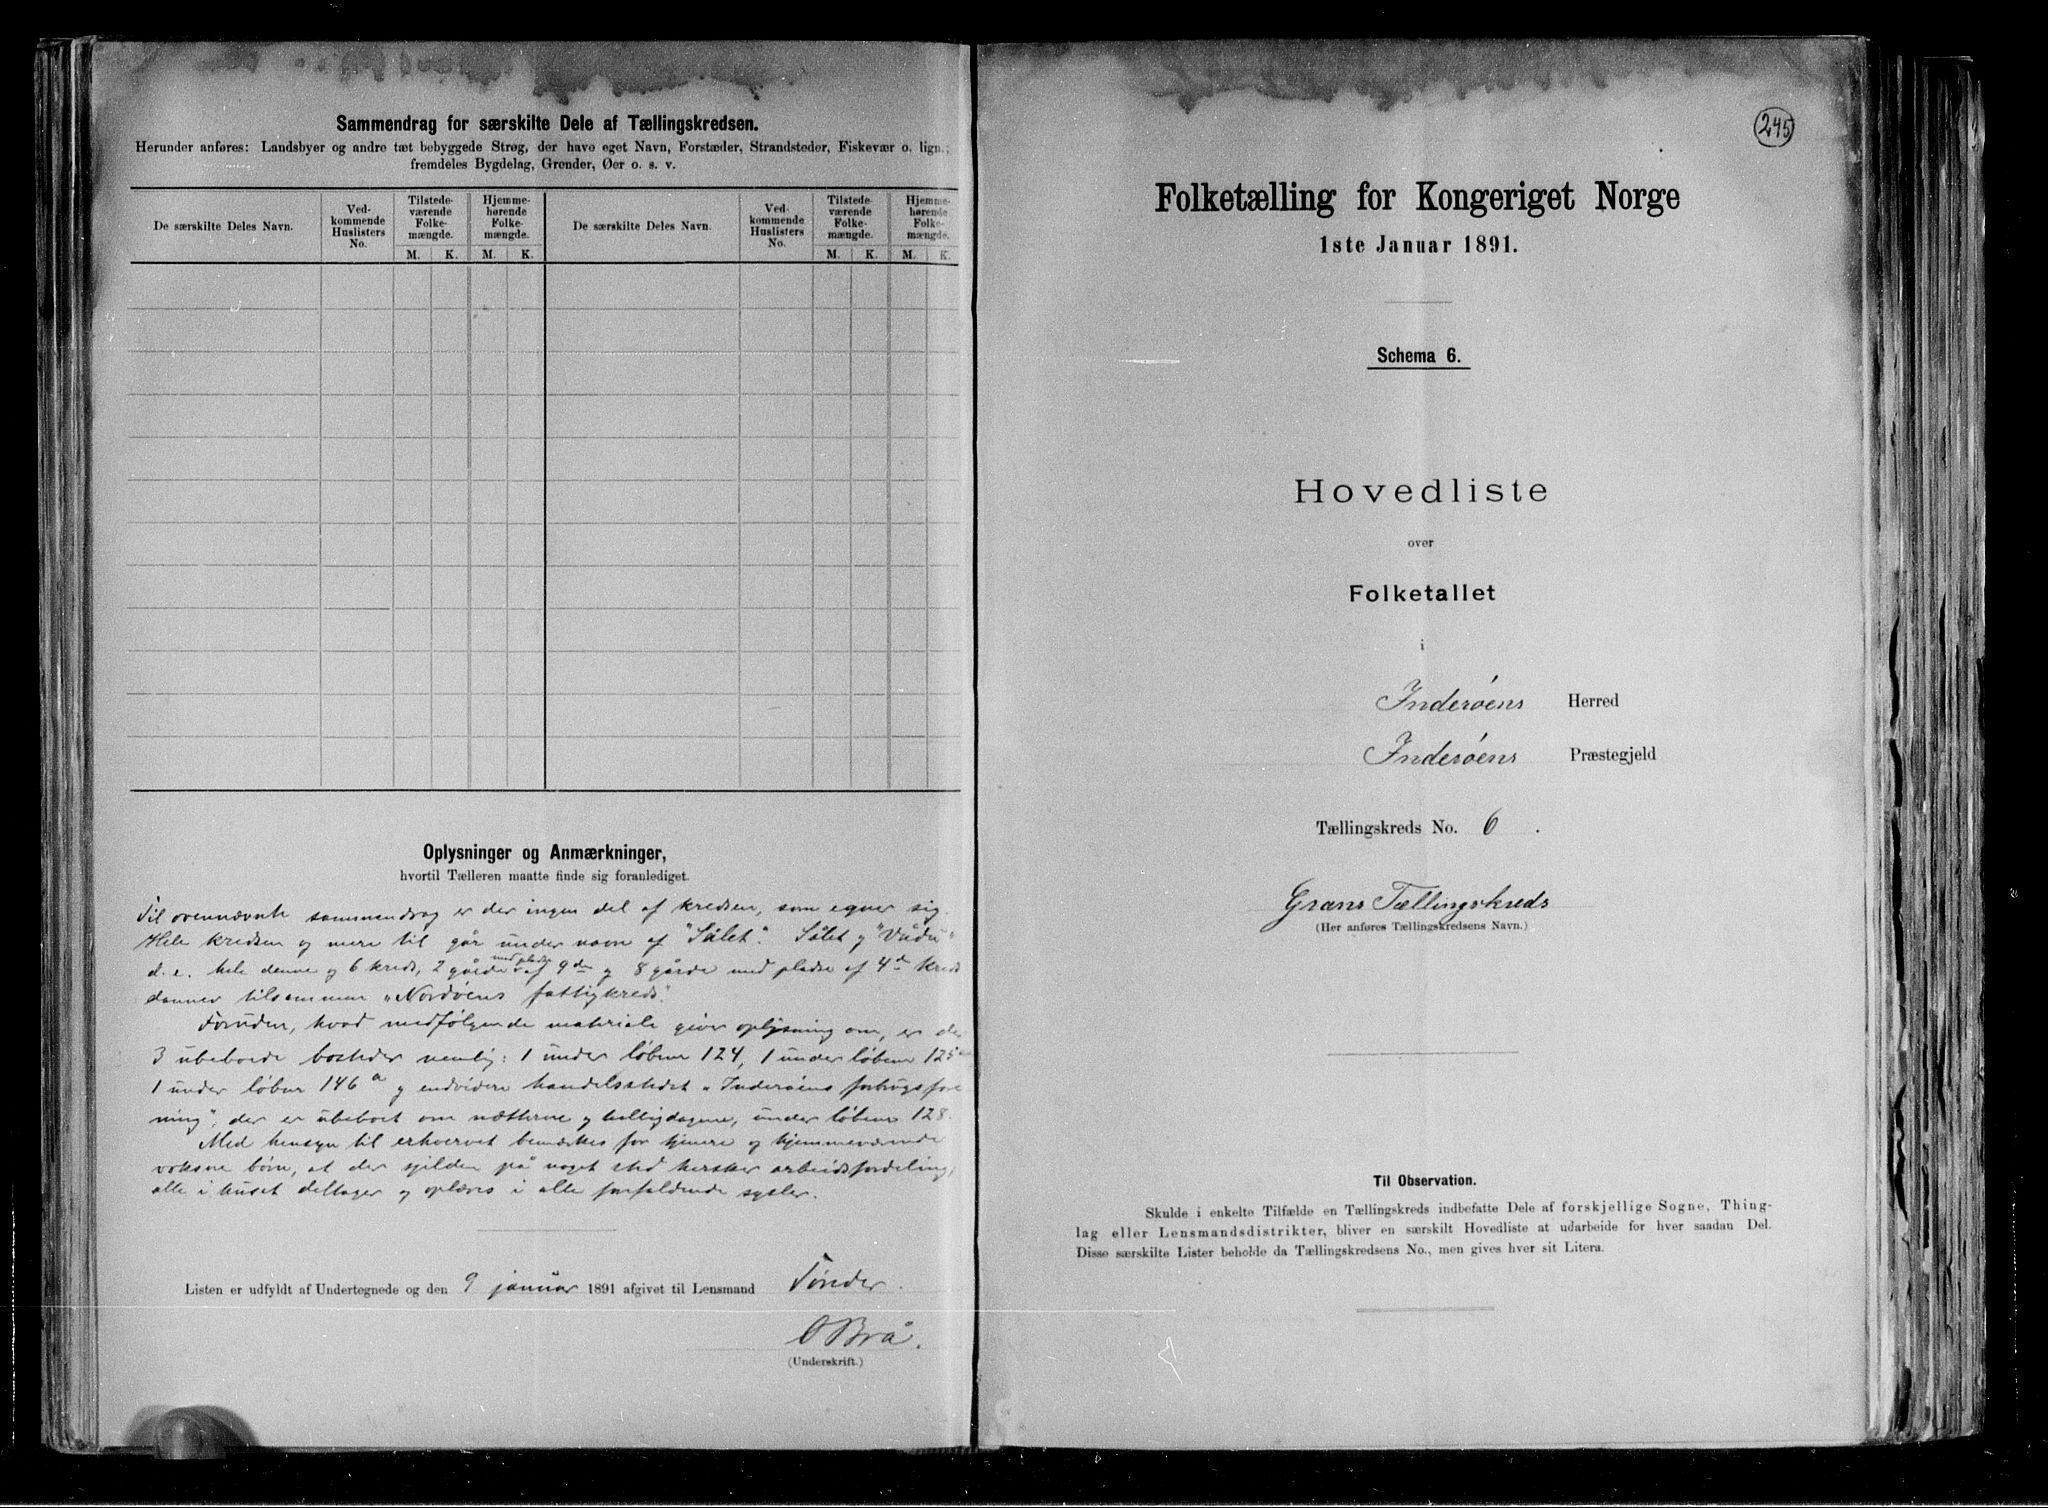 Sammendrag for særskilte Dele af Tællingskredsen.
Herunder anføres: Landsbyer og andre tæt bebyggede Strøg, der have eget Navn, Forstæder, Strandsteder, Fiskevær o. lign.;
fremdeles Bygdelag, Grender, Øer o. s. v.
De særskilte Deles Navn.
Ved-
kommende
Huslisters
No.
Tilstede-
værende
Folke-
mængde.
M. K.
Hjemme-
hørende
Folke-
mængde.
M. K.
De særskilte Deles Navn.
Ved-
kommende
Huslisters
No.
Tilstede-
værende
Folke-
mængde.
M. K.
Hjemme-
hørende
Folke-
mængde.
M. K.
Oplysninger og Anmærkninger,
hvortil Tælleren maatte finde sig foranlediget.
Til ovennævnte sammendrag er der ingen del af kredsen, som egner sig.
Hele kredsen og mere til går under navn af "Sålet". Sålet og
d. e. hele denne og 6 kreds, 2 gårde med pladse af 9de og 8 gårde med pladse af 4de kreds
danner tilsammen "Nordøens fattigkreds".
Foruden, hvad medfølgende materiale giver oplysning om, er der
3 ubeboede bosteder nemlig: 1 under løbenr 124, 1 under løbenr 125
1 under løbnr 146a og endvidere handelsstedet "Inderøens forbrugsfore
ning", der er ubeboet om nætterne og helligdagene, under løbenr 128.
Med hensyn til erhvervet bemærkes for tjenere og hjemmeværende
voksne børn, at der sjelden på noget sted hersker arbeidsfordeling,
alle i huset deltager og oplæres i alle forefaldende sysler.
Listen er udfyldt af Undertegnede og den 9 januar 1891 afgivet til Lensmand Tønder.
O Brå.
(Underskrift.)
245
Folketælling for Kongeriget Norge
1ste Januar 1891.
Schema 6.
Hovedliste
over
Folketallet
i
Inderøens Herred
Inderøens Præstegjeld
Tællingskreds No. 6.
Grans Tællingskreds
(Her anføres Tællingskredsens Navn.)
Til Observation.
Skulde i enkelte Tilfælde en Tællingskreds indbefatte Dele af forskjellige Sogne, Thing-
lag eller Lensmandsdistrikter, bliver en særskilt Hovedliste at udarbeide for hver saadan Del.
Disse særskilte Lister beholde da Tællingskredsens No., men gives hver sit Litera.